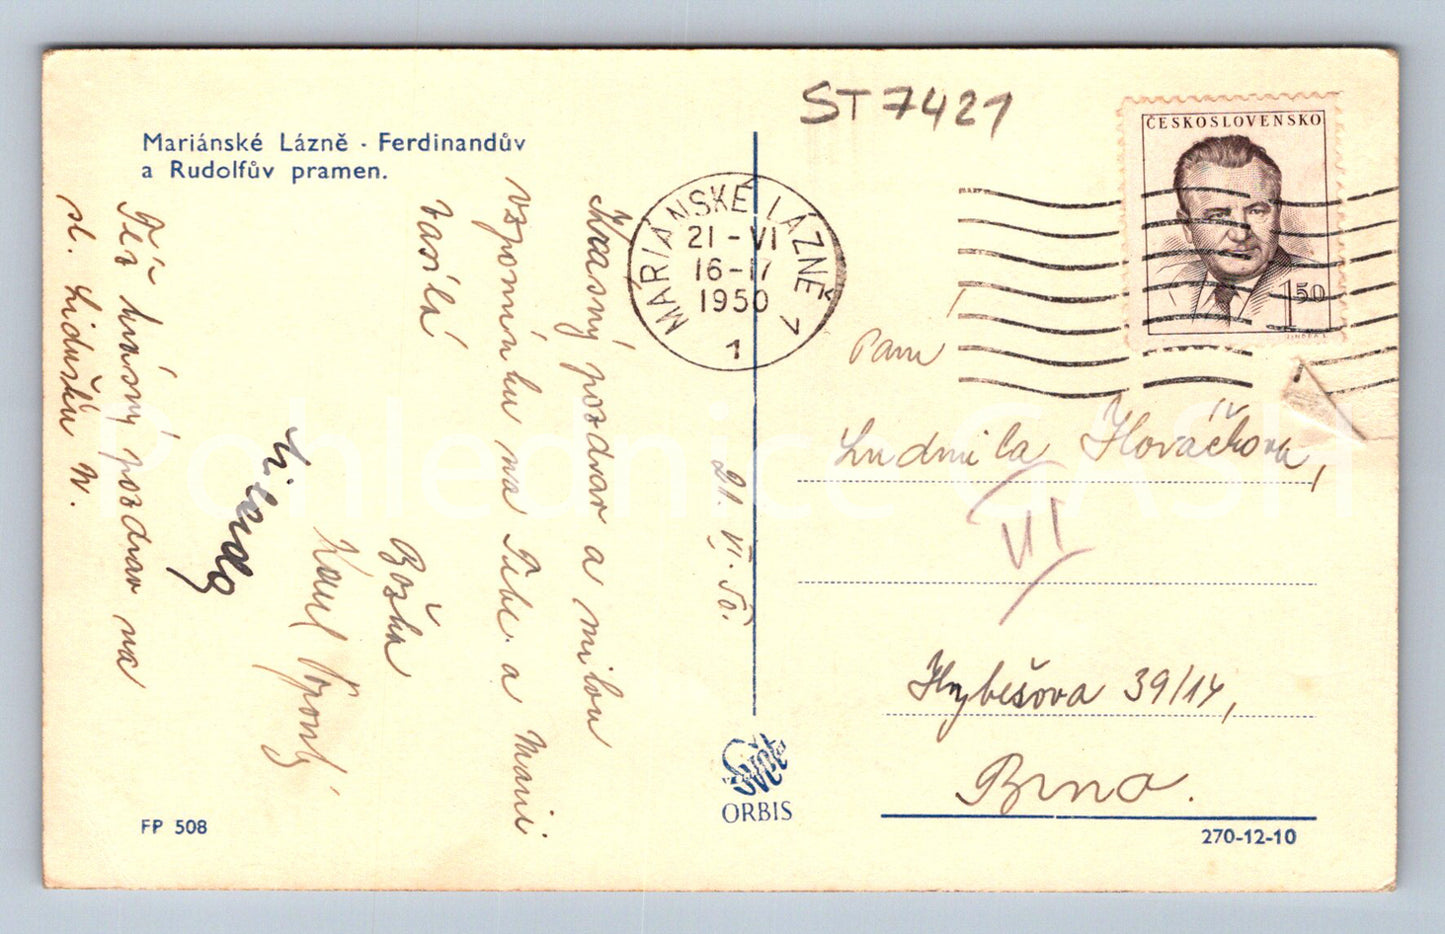 ST 7421
Mariánské Lázně · Ferdinandův
a Rudolfův pramen.
Krásný pozdrav a milou
vzpomínku na Tebe a Mani
zasílá
Božka
Karel
Též krásný pozdrav na
sl. Lidušku N.
21. VI. 50.
MARIÁNSKÉ LÁZNĚ 1
21-VI
16-17
1950
1
ČESKOSLOVENSKO
1 50
Paní
Ludmila Hlováčkova,
VI
Hybešova 39/14,
Brno.
Svět
ORBIS
FP 508
270-12-10
Pohlednice GASH